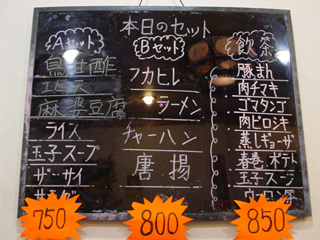 本日のセット
Aセット
鳥甘酢
エビ天
麻婆豆腐
ライス
玉子スープ
ザーサイ
サラダ
750
Bセット
フカヒレ
ラーメン
チャーハン
唐揚
800
飲茶
豚まん
肉チマキ
ゴマタンゴ
肉ピロシキ
蒸しギョーザ
春巻 ポテト
玉子スープ
ウーロン茶
850